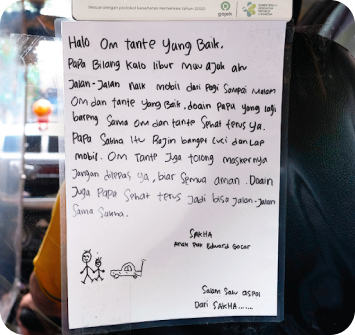 Sesuai dengan protokol kesehatan Kemenkes tahun 2020
gojek
Halo Om tante Yang Baik.
Papa Bilang Kalo libur Mau ajak aku
Jalan-Jalan naik mobil dari Pagi Sampai Malam
Om dan tante Yang Baik, doain Papa yang lagi
bareng Sama om dan tante Sehat terus Ya.
Papa Sakha Itu Rajin banget cuci dan Lap
mobil. Om Tante Juga tolong maskernya
Jangan dilepas ya, biar Semua aman. Doain
Juga Papa Sehat terus Jadi bisa Jalan-Jalan
Sama Sakha.
SAKHA
Anak Pak Edward Gocar
Salam Satu aspal
Dari SAKHA......